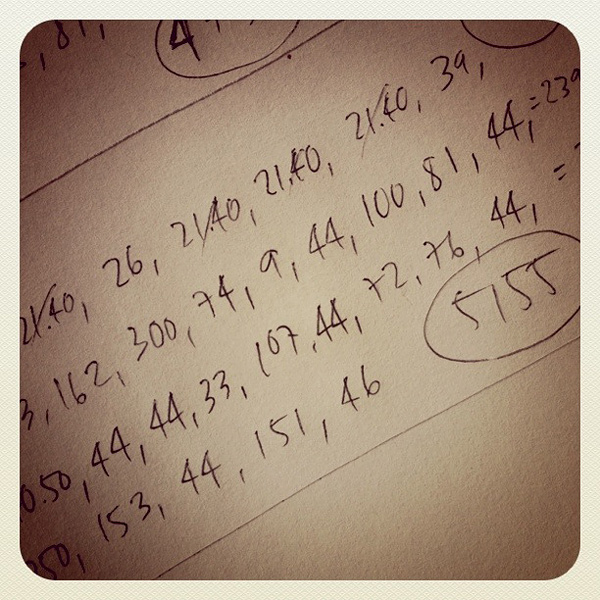 81,
21.40, 26, 21.40, 21.40, 21.40, 39,
3, 162, 300, 74, 9, 44, 100, 81, 44, =239
0.50, 44, 44, 33, 107, 44, 72, 76, 44, =
350, 153, 44, 151, 46
5155